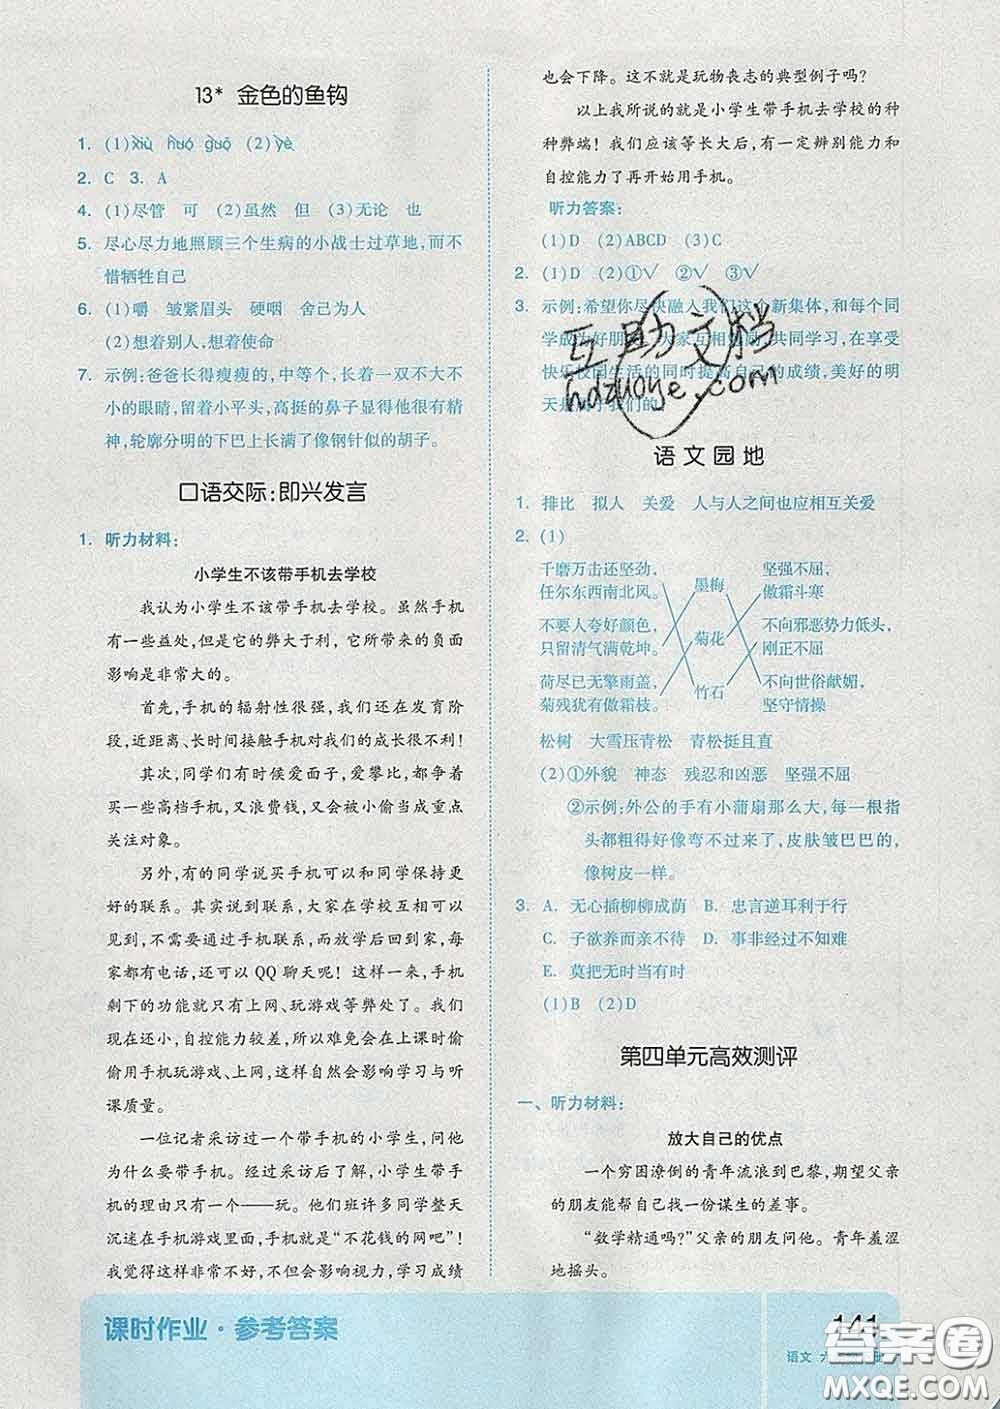 13* 金色的鱼钩
1. (1)xiù huó guō (2)yè
2. C 3. A
4. (1)尽管 可 (2)虽然 但 (3)无论 也
5. 尽心尽力地照顾三个生病的小战士过草地,而不
惜牺牲自己
6. (1)嚼 皱紧眉头 硬咽 舍己为人
(2)想着别人,想着使命
7. 示例:爸爸长得瘦瘦的,中等个,长着一双不大不
小的眼睛,留着小平头,高挺的鼻子显得他很有精
神,轮廓分明的下巴上长满了像钢针似的胡子。
口语交际:即兴发言
1. 听力材料:
小学生不该带手机去学校
我认为小学生不该带手机去学校。虽然手机
有一些益处,但是它的弊大于利,它所带来的负面
影响是非常大的。
首先,手机的辐射性很强,我们还在发育阶
段,近距离、长时间接触手机对我们的成长很不利!
其次,同学们有时候爱面子,爱攀比,都争着
买一些高档手机,又浪费钱,又会被小偷当成重点
关注对象。
另外,有的同学说买手机可以和同学保持更
好的联系。其实说到联系,大家在学校互相可以
见到,不需要通过手机联系,而放学后回到家,每
家都有电话,还可以QQ聊天呢!这样一来,手机
剩下的功能就只有上网、玩游戏等弊处了。我们
现在还小,自控能力较差,所以难免会在上课时偷
偷用手机玩游戏、上网,这样自然会影响学习与听
课质量。
一位记者采访过一个带手机的小学生,问他
为什么要带手机。经过采访后了解,小学生带手
机的理由只有一个——玩。他们班许多同学整天
沉迷在手机游戏里面,手机就是“不花钱的网吧”!
我觉得这样非常不好,不但会影响视力,学习成绩
也会下降。这不就是玩物丧志的典型例子吗?
以上我所说的就是小学生带手机去学校的种
种弊端!我们应该等长大后,有一定辨别能力和
自控能力了再开始用手机。
听力答案:
(1)D (2)ABCD (3)C
2. (1)D (2)①√ ②√ ③√
3. 示例:希望你尽快融入我们这个新集体,和每个同
学成为好朋友,大家互相勉励,共同学习,在享受
快乐校园生活的同时提高自己的成绩,美好的明
天是属于我们的。
互助文档
hdzuoye.com
语文园地
1. 排比 拟人 关爱 人与人之间也应相互关爱
2. (1)
千磨万击还坚劲,
任尔东西南北风。
墨梅
坚强不屈,
傲霜斗寒
不要人夸好颜色,
只留清气满乾坤。
菊花
不向邪恶势力低头,
刚正不屈
荷尽已无擎雨盖,
菊残犹有傲霜枝。
竹石
不向世俗献媚,
坚守情操
松树 大雪压青松 青松挺且直
(2)①外貌 神态 残忍和凶恶 坚强不屈
②示例:外公的手有小蒲扇那么大,每一根指
头都粗得好像弯不过来了,皮肤皱巴巴的,
像树皮一样。
3. A. 无心插柳柳成荫 B. 忠言逆耳利于行
C. 子欲养而亲不待 D. 事非经过不知难
E. 莫把无时当有时
(1)B (2)D
第四单元高效测评
一、听力材料:
放大自己的优点
一个穷困潦倒的青年流浪到巴黎,期望父亲
的朋友能帮自己找一份谋生的差事。
“数学精通吗?”父亲的朋友问他。青年羞涩
地摇头。
课时作业·参考答案
141
语文 六
答案圈
MXQE.COM